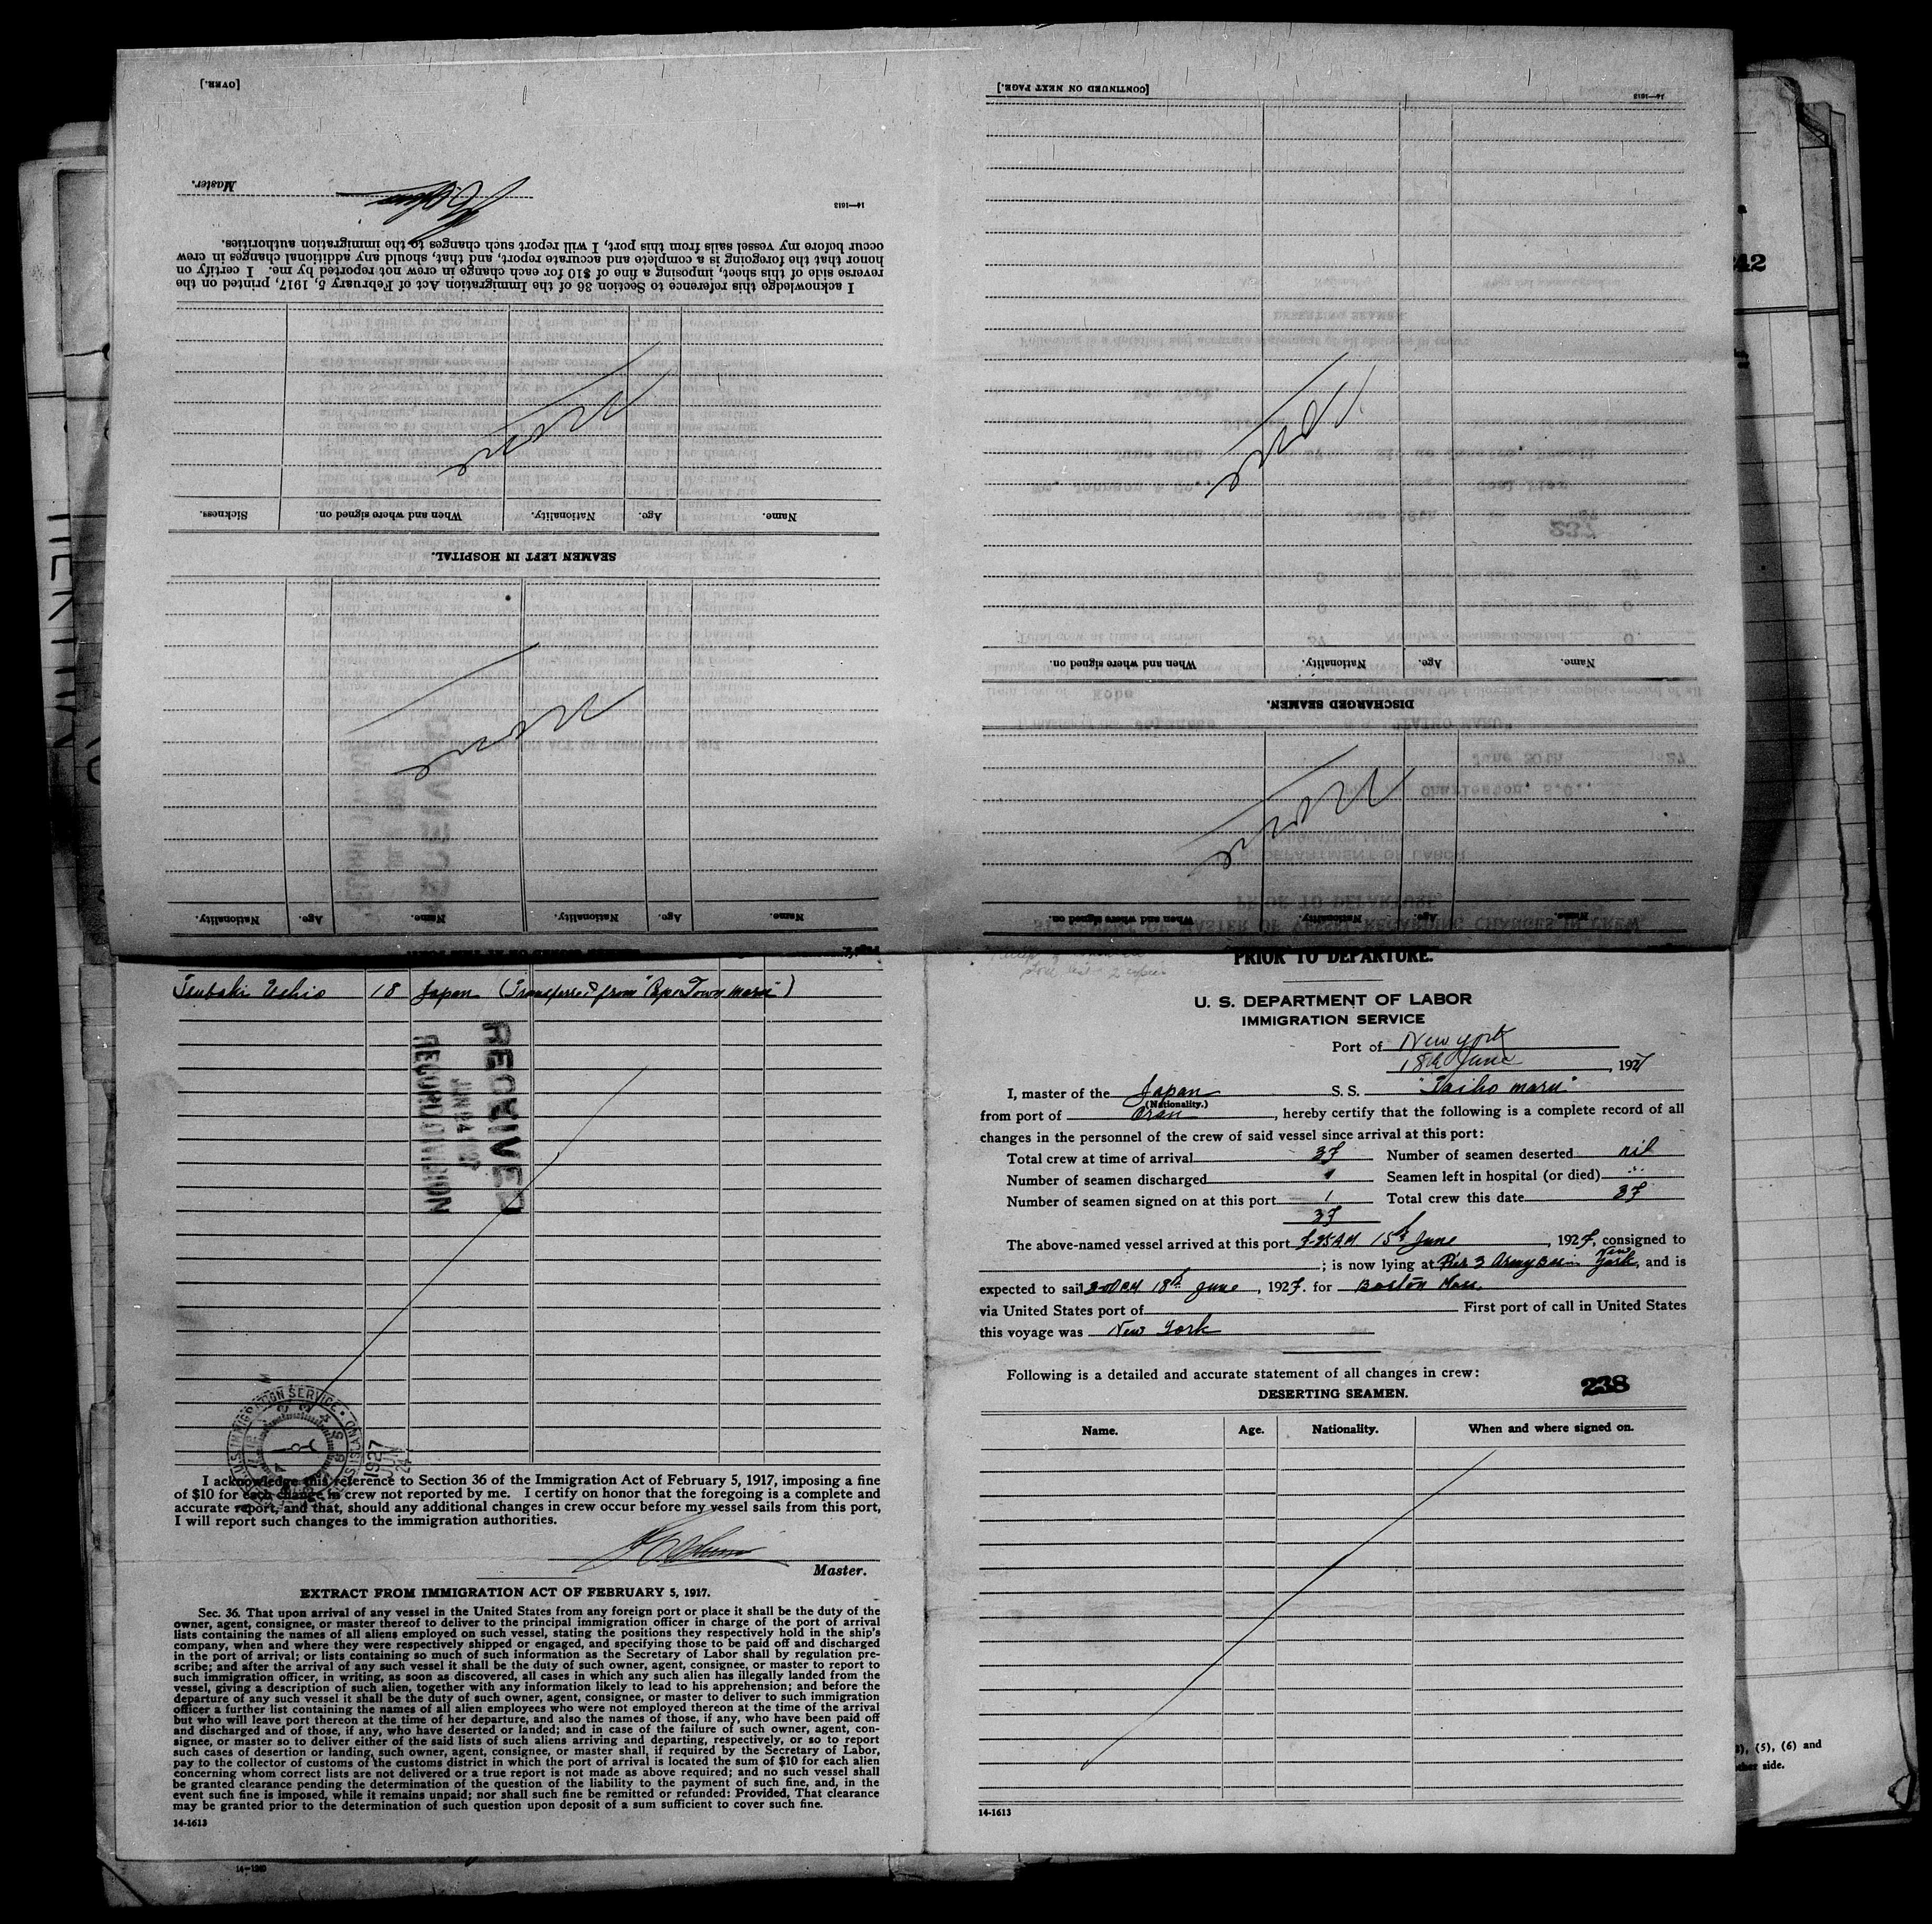 [OVER.]
Master.
14—1613
I acknowledge this reference to Section 36 of the Immigration Act of February 5, 1917, printed on the
reverse side of this sheet, imposing a fine of $10 for each change in crew not reported by me. I certify on
honor that the foregoing is a complete and accurate report, and that, should any additional changes in crew
occur before my vessel sails from this port, I will report such changes to the immigration authorities.
Name. Age. Nationality. When and where signed on. Sickness.
SEAMEN LEFT IN HOSPITAL.
Name. Age. Nationality. Name. Age. Nationality.
[CONTINUED ON NEXT PAGE.]
14—1613
Name. Age. Nationality. When and where signed on.
DISCHARGED SEAMEN.
Name. Age. Nationality. When and where signed on.
Tsubaki Uchio 18 Japan (Transferred from Cape Town maru)
RECEIVED
JUN 24 1927
RECORD DIVISION
U.S. IMMIGRATION SERVICE
1927
JUN
24
I acknowledge this reference to Section 36 of the Immigration Act of February 5, 1917, imposing a fine
of $10 for each change in crew not reported by me. I certify on honor that the foregoing is a complete and
accurate report, and that, should any additional changes in crew occur before my vessel sails from this port,
I will report such changes to the immigration authorities.
Master.
EXTRACT FROM IMMIGRATION ACT OF FEBRUARY 5, 1917.
Sec. 36. That upon arrival of any vessel in the United States from any foreign port or place it shall be the duty of the
owner, agent, consignee, or master thereof to deliver to the principal immigration officer in charge of the port of arrival
lists containing the names of all aliens employed on such vessel, stating the positions they respectively hold in the ship's
company, when and where they were respectively shipped or engaged, and specifying those to be paid off and discharged
in the port of arrival; or lists containing so much of such information as the Secretary of Labor shall by regulation pre-
scribe; and after the arrival of any such vessel it shall be the duty of such owner, agent, consignee, or master to report to
such immigration officer, in writing, as soon as discovered, all cases in which any such alien has illegally landed from the
vessel, giving a description of such alien, together with any information likely to lead to his apprehension; and before the
departure of any such vessel it shall be the duty of such owner, agent, consignee, or master to deliver to such immigration
officer a further list containing the names of all alien employees who were not employed thereon at the time of the arrival
but who will leave port thereon at the time of her departure, and also the names of those, if any, who have been paid off
and discharged and of those, if any, who have deserted or landed; and in case of the failure of such owner, agent, con-
signee, or master so to deliver either of the said lists of such aliens arriving and departing, respectively, or so to report
such cases of desertion or landing, such owner, agent, consignee, or master shall, if required by the Secretary of Labor,
pay to the collector of customs of the customs district in which the port of arrival is located the sum of $10 for each alien
concerning whom correct lists are not delivered or a true report is not made as above required; and no such vessel shall
be granted clearance pending the determination of the question of the liability to the payment of such fine, and, in the
event such fine is imposed, while it remains unpaid; nor shall such fine be remitted or refunded: Provided, That clearance
may be granted prior to the determination of such question upon deposit of a sum sufficient to cover such fine.
14-1613
PRIOR TO DEPARTURE.
U. S. DEPARTMENT OF LABOR
IMMIGRATION SERVICE
Port of New York
18th June, 1927
I, master of the Japan S. S. "Taiho maru"
(Nationality.)
from port of Oran, hereby certify that the following is a complete record of all
changes in the personnel of the crew of said vessel since arrival at this port:
Total crew at time of arrival 37 Number of seamen deserted nil
Number of seamen discharged Seamen left in hospital (or died) "
Number of seamen signed on at this port 1 Total crew this date 37
37
The above-named vessel arrived at this port 7-25 AM 15th June, 1927, consigned to
; is now lying at Pier 3 Army Base New York, and is
expected to sail 18th June, 1927. for Boston Mass.
via United States port of First port of call in United States
this voyage was New York
Following is a detailed and accurate statement of all changes in crew:
DESERTING SEAMEN.
238
Name. Age. Nationality. When and where signed on.
14-1613
(5), (6) and
other side.